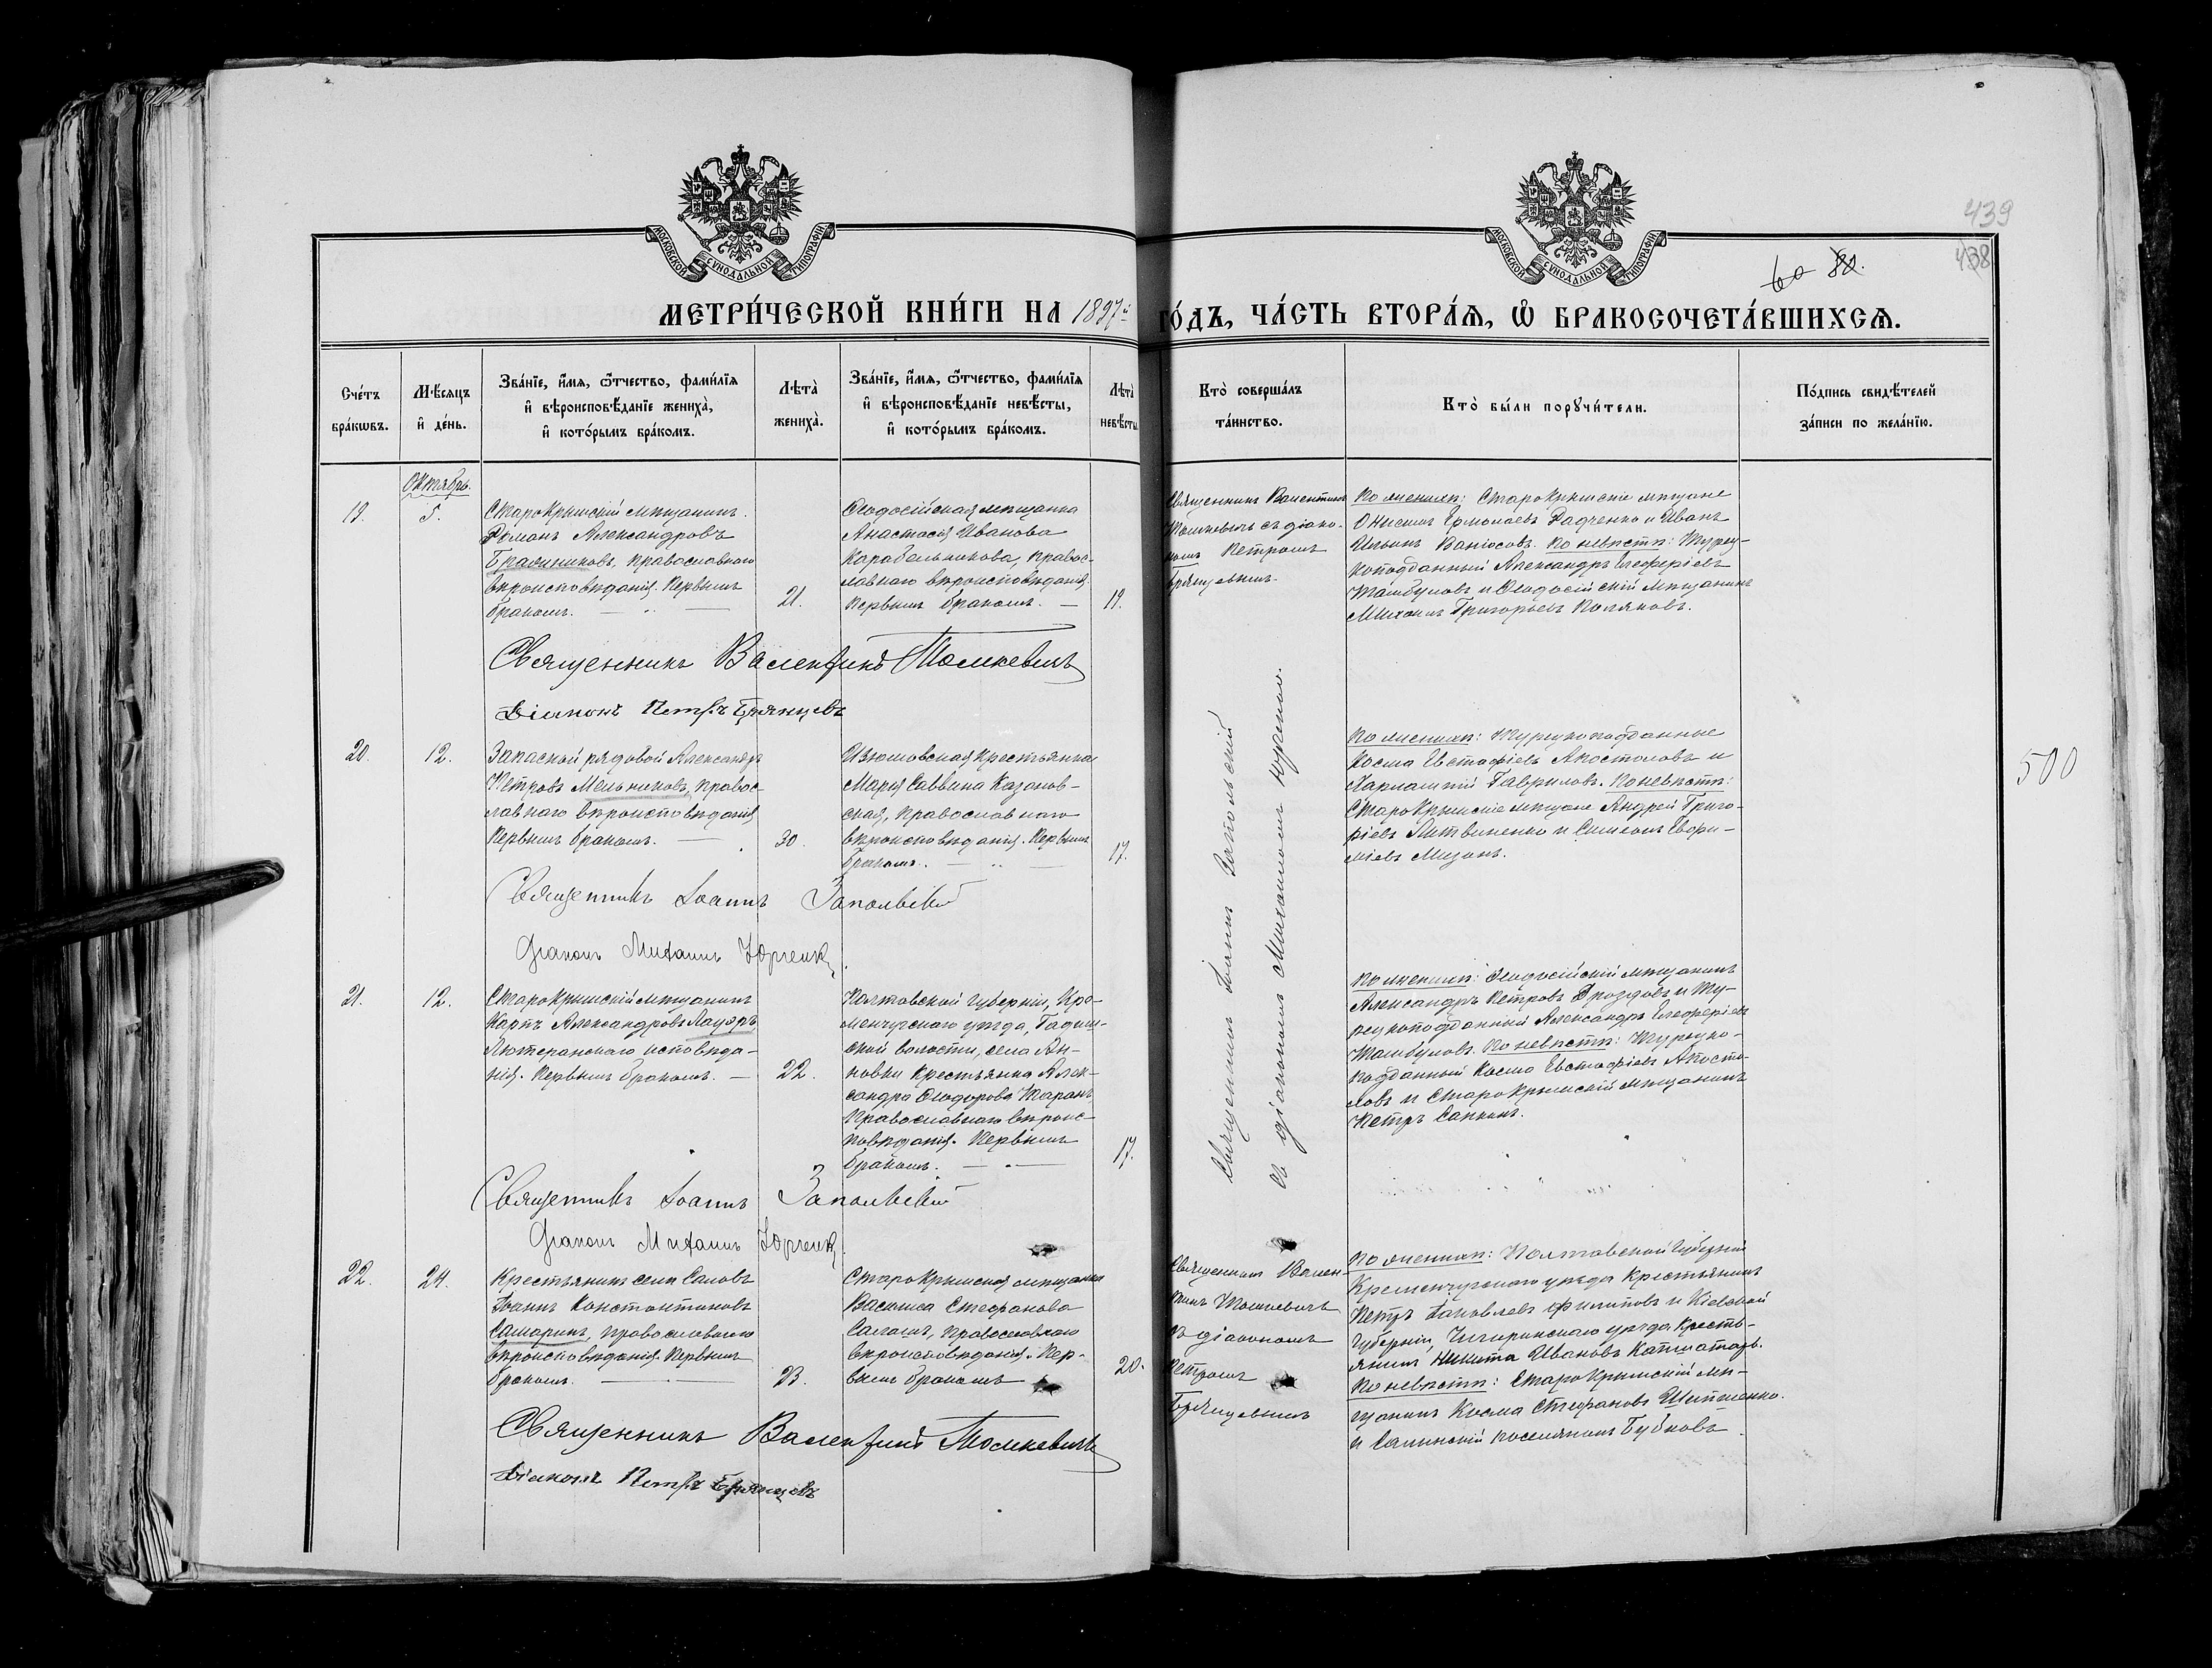 439
438
60 82.
МОСКОВСКОЙ СѴНОДАЛЬНОЙ ТИПОГРАФІИ
МОСКОВСКОЙ СѴНОДАЛЬНОЙ ТИПОГРАФІИ
МЕТРИ́ЧЕСКОЙ КНИ́ГИ НА 1897й ГО́ДЪ, ЧА́СТЬ ВТОРА́Ѧ, Ѡ҆ БРАКОСОЧЕТА́ВШИХСѦ.
Сче́тъ
бра́кѡвъ.
Мѣ́сяцъ
и҆ де́нь.
Зва́нїе, и҆́мя, ѻ҆́тчество, фами́лїя
и҆ вѣроисповѣ́данїе жениха̀,
и҆ кото́рымъ бра́комъ.
Лѣта̀
жениха̀.
Зва́нїе, и҆́мя, ѻ҆́тчество, фами́лїя
и҆ вѣроисповѣ́данїе невѣ́сты,
и҆ кото́рымъ бра́комъ.
Лѣта̀
невѣ́сты
Кто̀ соверша́лъ
та́инство.
Кто̀ бы́ли порꙋчи́тели.
По́дпись свидѣ́телей
за́писи по жела́нїю.
Октябрь.
19.
5.
Старокрымскій мѣщанинъ
Романъ Александровъ
Брасниковъ, православнаго
вѣроисповѣданія. Первымъ
бракомъ.
21.
Ѳеодосійская мѣщанка
Анастасія Иванова
Карабельникова, правос-
лавнаго вѣроисповѣданія.
Первымъ бракомъ.
19.
Священникъ Валентинъ
Томкевичъ съ діако-
номъ Петромъ
Брянцевымъ.
По женихѣ: Старокрымскіе мѣщане
Онисимъ Ермолаевъ Радченко и Иванъ
Ильинъ Ваніосовъ. По невѣстѣ: Турец-
коподданный Александръ Елеферіевъ
Тамбуловъ и Ѳеодосійскій мѣщанинъ
Михаилъ Григорьевъ Поляковъ.
Священникъ Валентинъ Томкевичъ
Діаконъ Петръ Брянцевъ
20.
12.
Запасный рядовой Александръ
Петровъ Мельниковъ, правос-
лавнаго вѣроисповѣданія
Первымъ бракомъ.
30.
Изюмовская крестьянка
Марія Саввина Казанов-
ская, православнаго
вѣроисповѣданія. Первымъ
бракомъ.
17.
Священникъ Іоаннъ Запольскій
съ діакономъ Михаиломъ Юрченко.
По женихѣ: Турецкоподданные
Косма Евстафіевъ Апостоловъ и
Харлампій Гавриловъ. По невѣстѣ:
Старокрымскіе мѣщане Андрей Григо-
ріевъ Литвиненко и Симеонъ Евфи-
міевъ Мизонъ.
500
Священникъ Іоаннъ Запольскій
Діаконъ Михаилъ Юрченко.
21.
12.
Старокрымскій мѣщанинъ
Карпъ Александровъ Лауэръ
Лютеранскаго исповѣда-
нія. Первымъ бракомъ.
22.
Полтавской губерніи, Кре-
менчугскаго уѣзда,
ской волости, села Ан-
новки крестьянка Алек-
сандра Ѳеодорова Таранъ
Православнаго вѣроис-
повѣданія. Первымъ
бракомъ.
17.
По женихѣ: Ѳеодосійскій мѣщанинъ
Александръ Петровъ Дроздовъ и Ту-
рецкоподданный Александръ Елеферіевъ
Тамбуловъ. По невѣстѣ: Турецко-
подданный Косма Евстафіевъ Апосто-
ловъ и Старокрымскій мѣщанинъ
Петръ Сапкинъ.
Священникъ Іоаннъ Запольскій
Діаконъ Михаилъ Юрченко.
22.
24.
Крестьянинъ села Саловъ
Іоаннъ Константиновъ
Самаринъ, православнаго
вѣроисповѣданія. Первымъ
бракомъ.
23.
Старокрымская мѣщанка
Василиса Стефанова
православнаго
вѣроисповѣданія. Пер-
вымъ бракомъ
20.
Священникъ Вален-
тинъ Томкевичъ
съ діакономъ
Петромъ
Брянцевымъ
По женихѣ: Полтавской губерніи
Кременчугскаго уѣзда крестьянинъ
Петръ Яковлевъ Филиповъ и Кіевской
губерніи, Чигиринскаго уѣзда кресть-
янинъ Никита Ивановъ
По невѣстѣ: Старокрымскій мѣ-
щанинъ Косма Стефановъ
и Салинскій поселянинъ Бубновъ.
Священникъ Валентинъ Томкевичъ
Діаконъ Петръ Брянцевъ